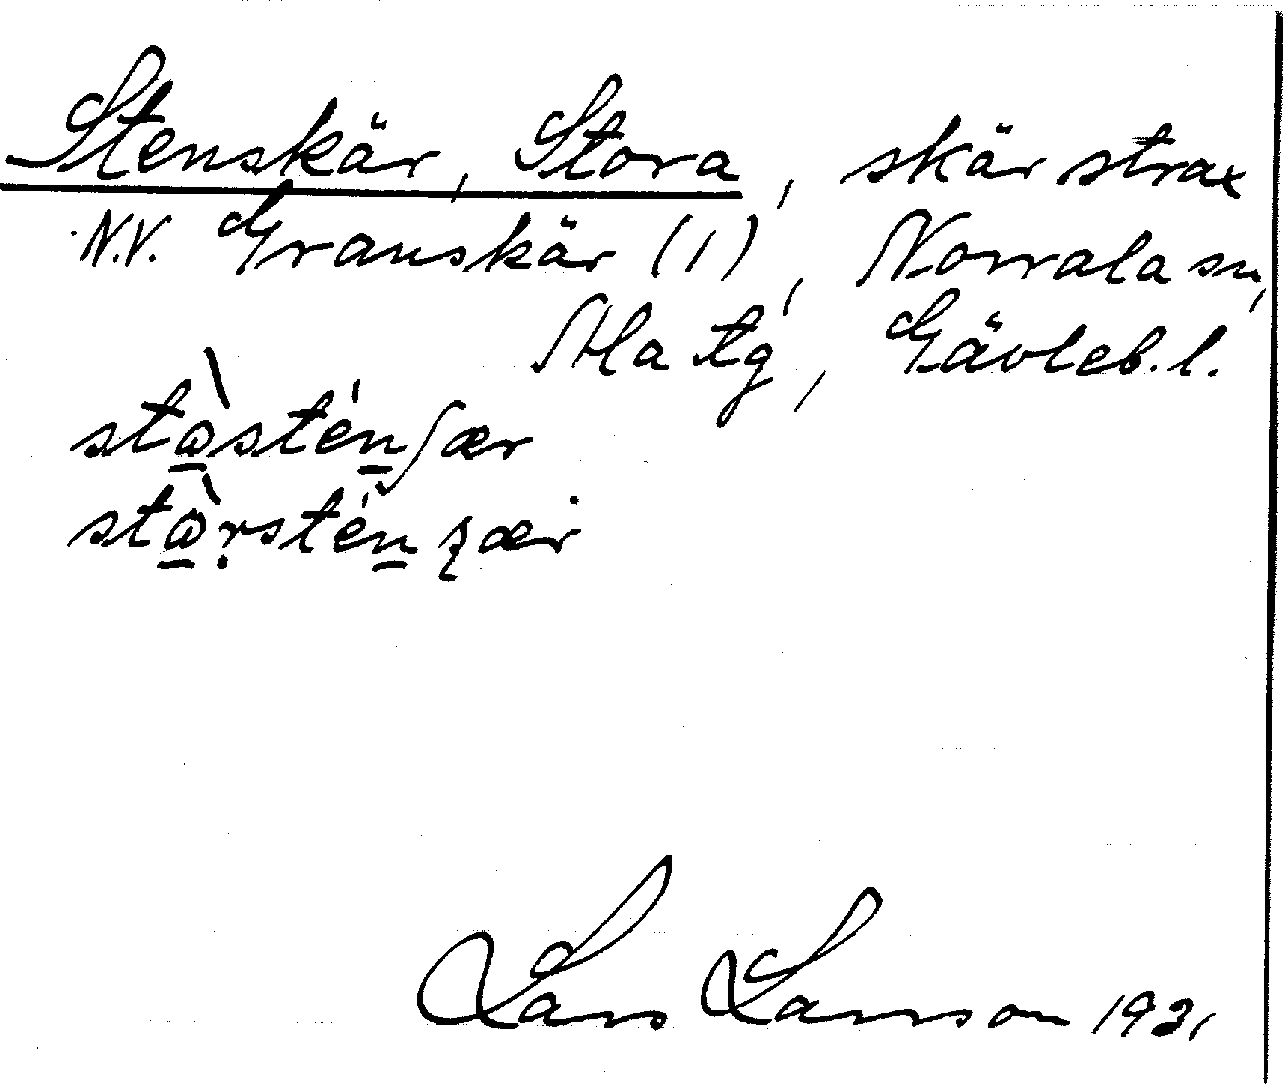 Stenskär, Stora, skär strax
N.V. Granskär (1), Norrala sn,
Ala tg, Gävleb.l.
stɷ̀sténʃær
stɷ̀ṛsténʂær
Lars Larsson 1931